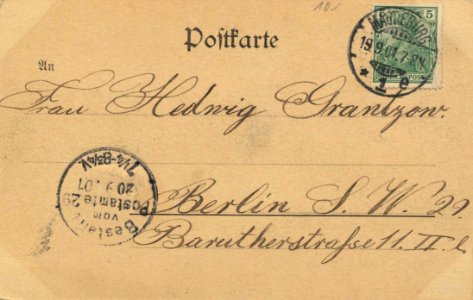 10.-
Postkarte
5
MAGDEBURG
19.9.01.7-8N.
* 1 e
An
Frau Hedwig Grantzow.
Bestellt
vom
Postamte 29
20 9. 01
7¼-8¾V.
Berlin S. W. 29.
Barutherstrasse 11. II l.